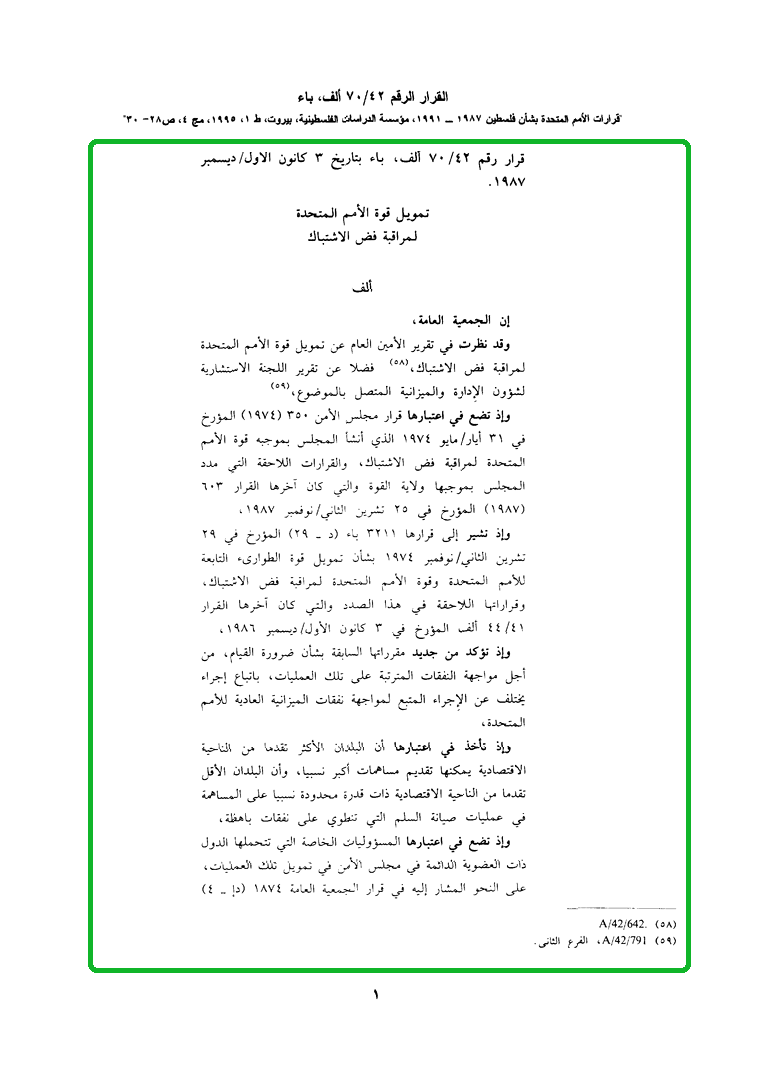 القرار الرقم ٧٠/٤٢ ألف، باء
"قرارات الأمم المتحدة بشأن فلسطين ١٩٨٧ ــ ١٩٩١، مؤسسة الدراسات الفلسطينية، بيروت، ط ١، ١٩٩٥، مج ٤، ص٢٨- ٣٠"
قرار رقم ٧٠/٤٢ ألف، باء بتاريخ ٣ كانون الاول/ديسمبر
١٩٨٧.
تمويل قوة الأمم المتحدة
لمراقبة فض الاشتباك
ألف
إن الجمعية العامة،
وقد نظرت في تقرير الأمين العام عن تمويل قوة الأمم المتحدة
لمراقبة فض الاشتباك،(٥٨) فضلا عن تقرير اللجنة الاستشارية
لشؤون الإدارة والميزانية المتصل بالموضوع،(٥٩)
وإذ تضع في اعتبارها قرار مجلس الأمن ٣٥٠ (١٩٧٤) المؤرخ
في ٣١ أيار/مايو ١٩٧٤ الذي أنشأ المجلس بموجبه قوة الأمم
المتحدة لمراقبة فض الاشتباك، والقرارات اللاحقة التي مدد
المجلس بموجبها ولاية القوة والتي كان آخرها القرار ٦٠٣
(١٩٨٧) المؤرخ في ٢٥ تشرين الثاني/نوفمبر ١٩٨٧،
وإذ تشير إلى قرارها ٣٢١١ باء (د ــ ٢٩) المؤرخ في ٢٩
تشرين الثاني/نوفمبر ١٩٧٤ بشأن تمويل قوة الطوارىء التابعة
للأمم المتحدة وقوة الأمم المتحدة لمراقبة فض الاشتباك،
وقراراتها اللاحقة في هذا الصدد والتي كان آخرها القرار
٤٤/٤١ ألف المؤرخ في ٣ كانون الأول/ديسمبر ١٩٨٦،
وإذ تؤكد من جديد مقرراتها السابقة بشأن ضرورة القيام، من
أجل مواجهة النفقات المترتبة على تلك العمليات، باتباع إجراء
يختلف عن الإجراء المتبع لمواجهة نفقات الميزانية العادية للأمم
المتحدة،
وإذ تأخذ في اعتبارها أن البلدان الأكثر تقدما من الناحية
الاقتصادية يمكنها تقديم مساهمات أكبر نسبيا، وأن البلدان الأقل
تقدما من الناحية الاقتصادية ذات قدرة محدودة نسبيا على المساهمة
في عمليات صيانة السلم التي تنطوي على نفقات باهظة،
وإذ تضع في اعتبارها المسؤوليات الخاصة التي تتحملها الدول
ذات العضوية الدائمة في مجلس الأمن في تمويل تلك العمليات،
على النحو المشار إليه في قرار الجمعية العامة ١٨٧٤ (دإ ــ ٤)
(٥٨) A/42/642.
(٥٩) A/42/791، الفرع الثاني.
١